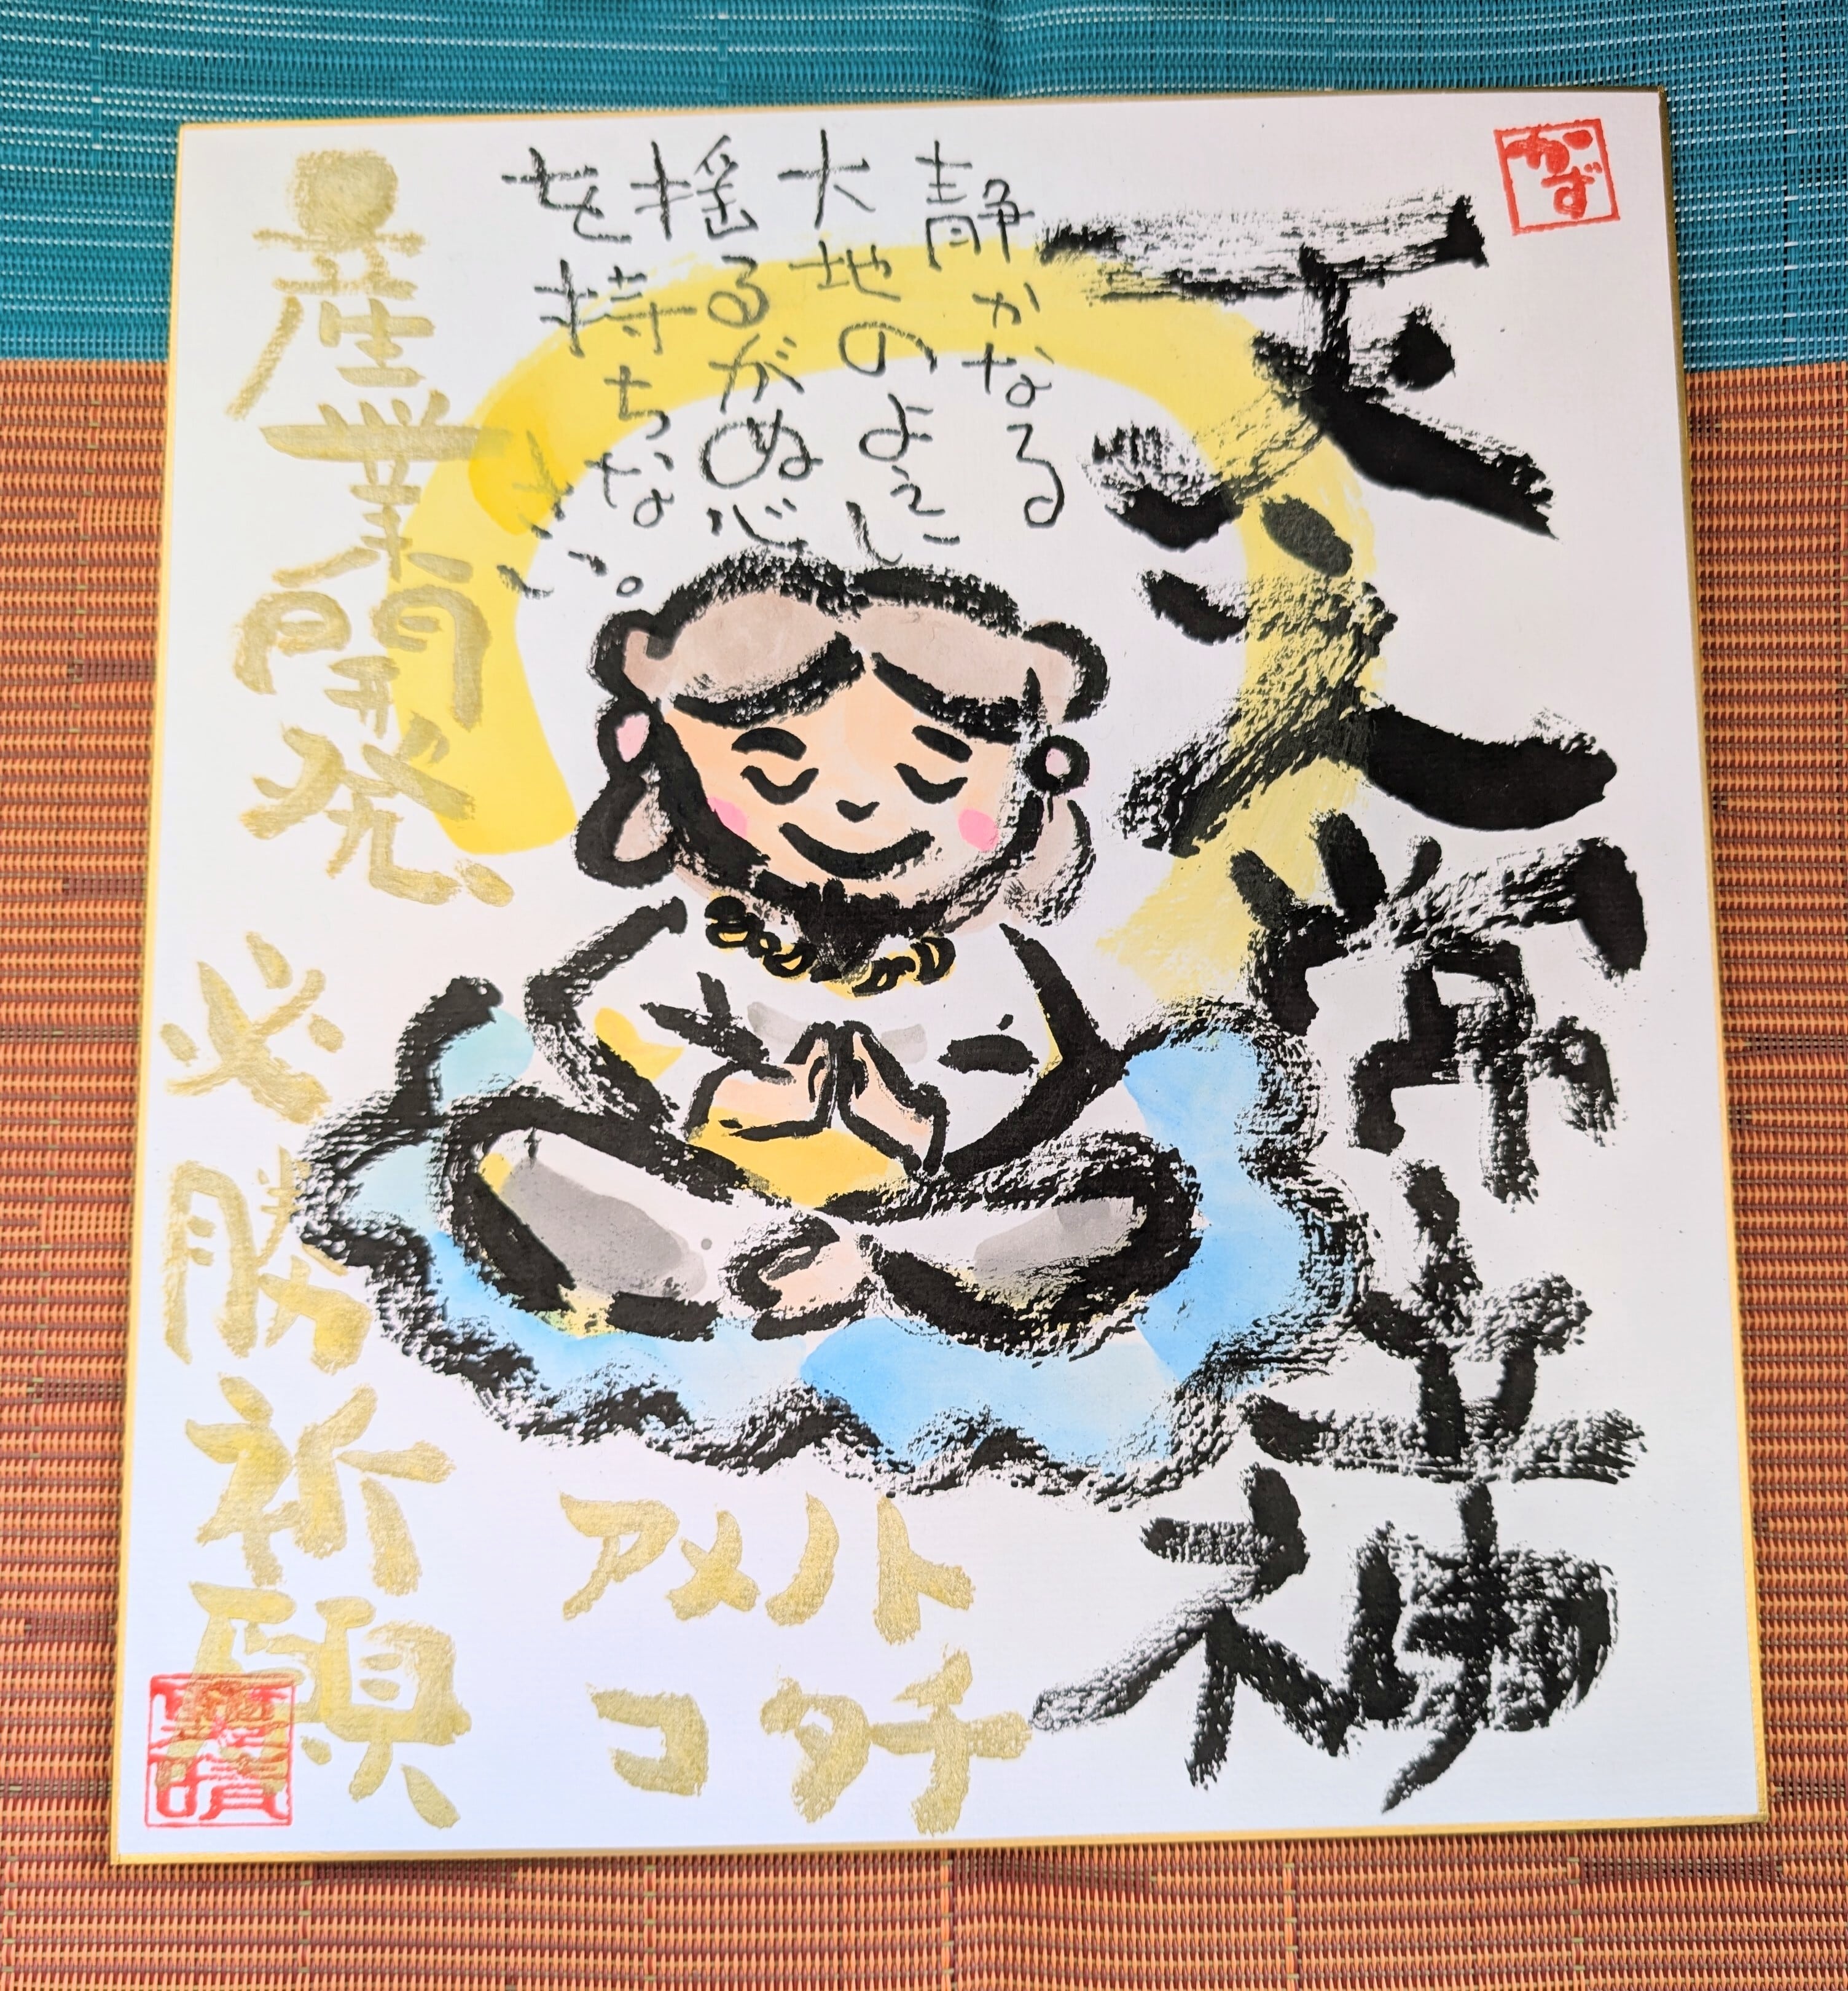 かず
天之常立神
静かなる
大地のように
揺るがぬ心
を持ちな
さい。
産業開発
必勝祈願
アメノト
コタチ